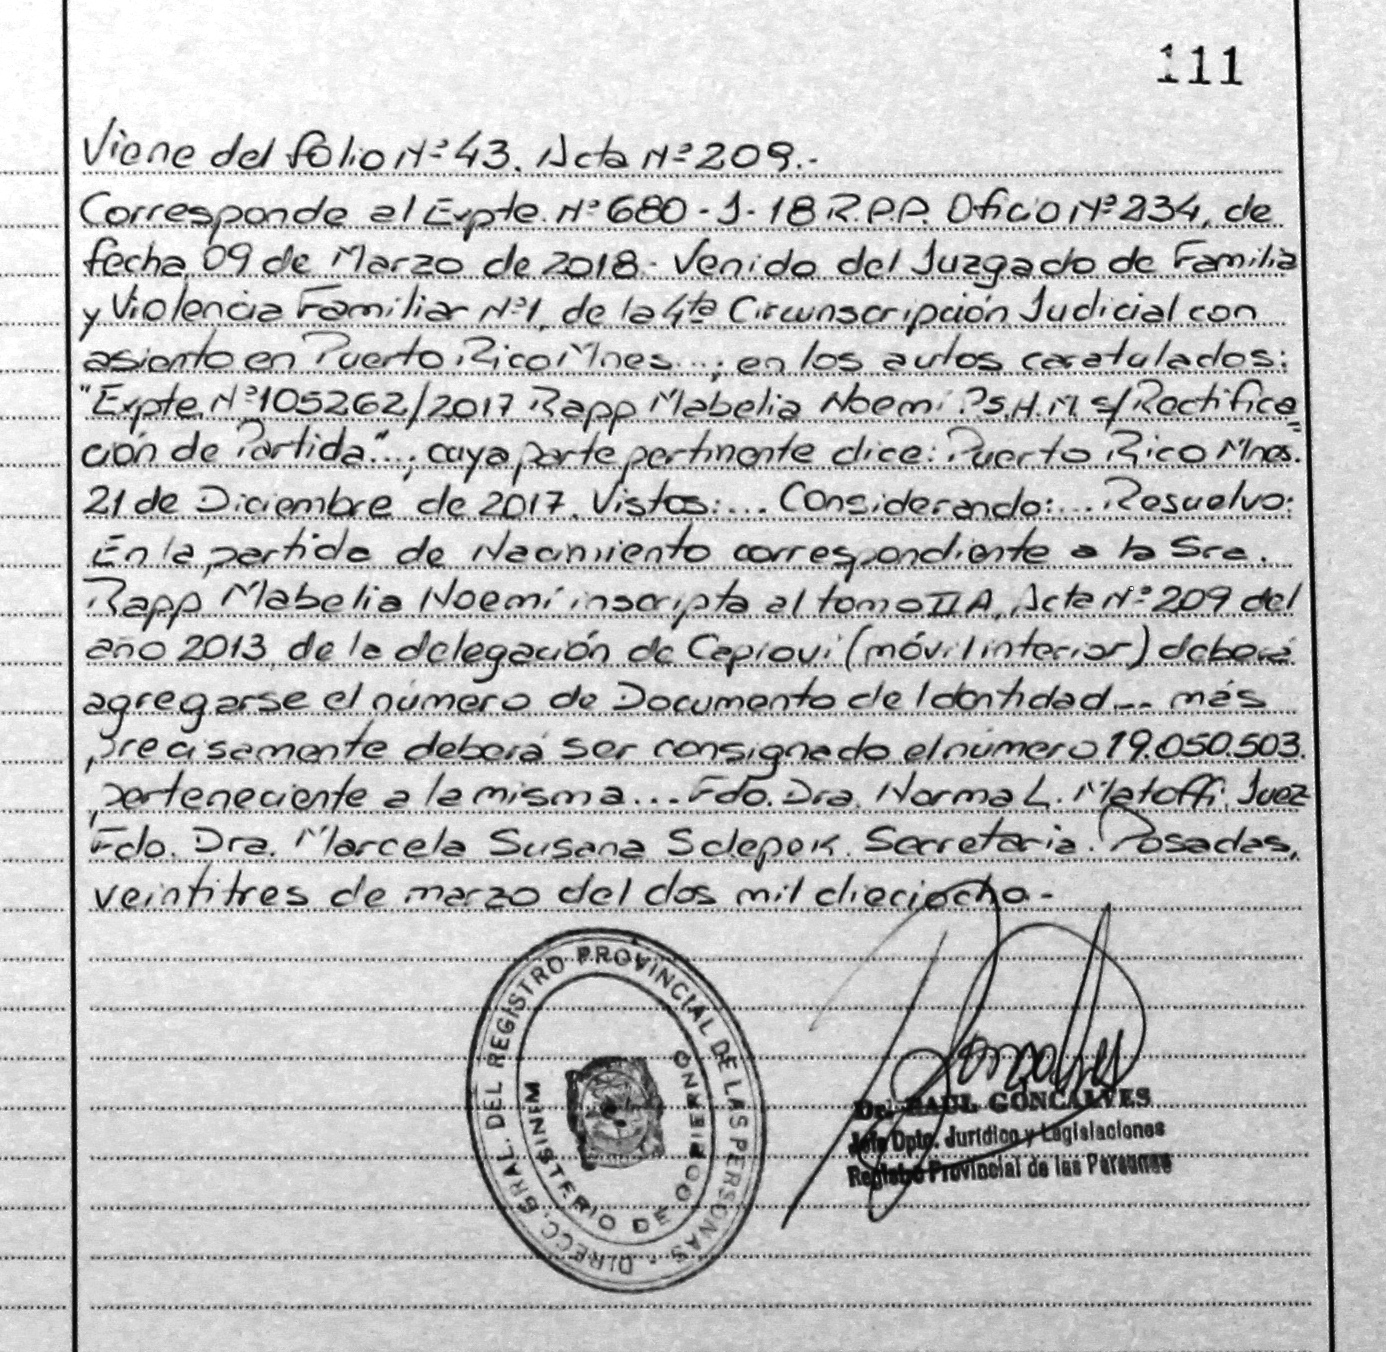 111
Viene del folio Nº 43. Acta Nº 209.-
Corresponde al Expte. Nº 680 - J - 18 R.P.P. Oficio Nº 234, de
fecha 09 de Marzo de 2018 - Venido del Juzgado de Familia
y Violencia Familiar Nº 1, de la 4ta Circunscripción Judicial con
asiento en Puerto Rico Mnes...; en los autos caratulados:
"Expte. Nº 105262/2017 Rapp Mabelia Noemí P.S.H.M s/Rectifica=
ción de Partida"...; cuya parte pertinente dice: Puerto Rico Mnes.
21 de Diciembre de 2017. Vistos:... Considerando:... Resuelvo:
En la partida de Nacimiento correspondiente a la Sra.
Rapp Mabelia Noemí inscripta al tomo II A, Acta Nº 209 del
año 2013, de la delegación de Capioví (móvil interior) deberá
agregarse el número de Documento de Identidad... más
precisamente deberá ser consignado el número 19.050.503.
perteneciente a la misma... Fdo. Dra. Norma L. Matoffi, Juez
Fdo. Dra. Marcela Susana Sclepek. Secretaria. Posadas,
veintitres de marzo del dos mil dieciocho.-
DIRECC. GRAL. DEL REGISTRO PROVINCIAL DE LAS PERSONAS.
MINISTERIO DE GOBIERNO
Dr. RAUL GONCALVES
Jefe Dpto. Jurídico y Legislaciones
Registro Provincial de las Personas